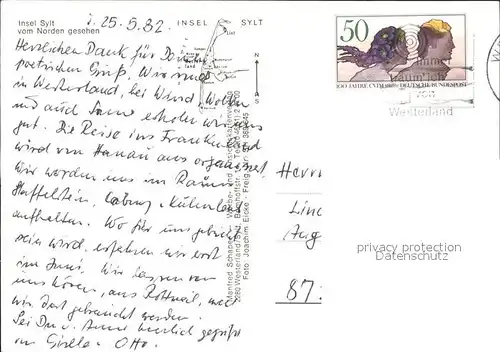 Insel Sylt
vom Norden gesehen
25.5.82.
INSEL SYLT
Herzlichen Dank für
poetischen Gruß. Wir sind
in Westerland, bei Wind, Wolken
und auch Sonne erholen wir uns
gut. Die Reise ins Frankenland
wird von Hanau aus organisiert
Wir werden uns im Raum
Staffelstein, Coburg,
aufhalten. Wo für uns gebucht
sein wird, erfahren wir erst
im Juni. Wir lassen von
uns hören, aus Rottweil, weil
wir dort gebraucht werden.
Sei Du u. Anne herzlich gegrüßt
von Otto.
Manfred Schaper
2280 Westerland/Sylt
Foto: Joachim Eicke
50
100 JAHRE CVJM DEUTSCHE BUNDESPOST
Westerland
Herrn
Linc
Aug
87:
privacy protection
Datenschutz